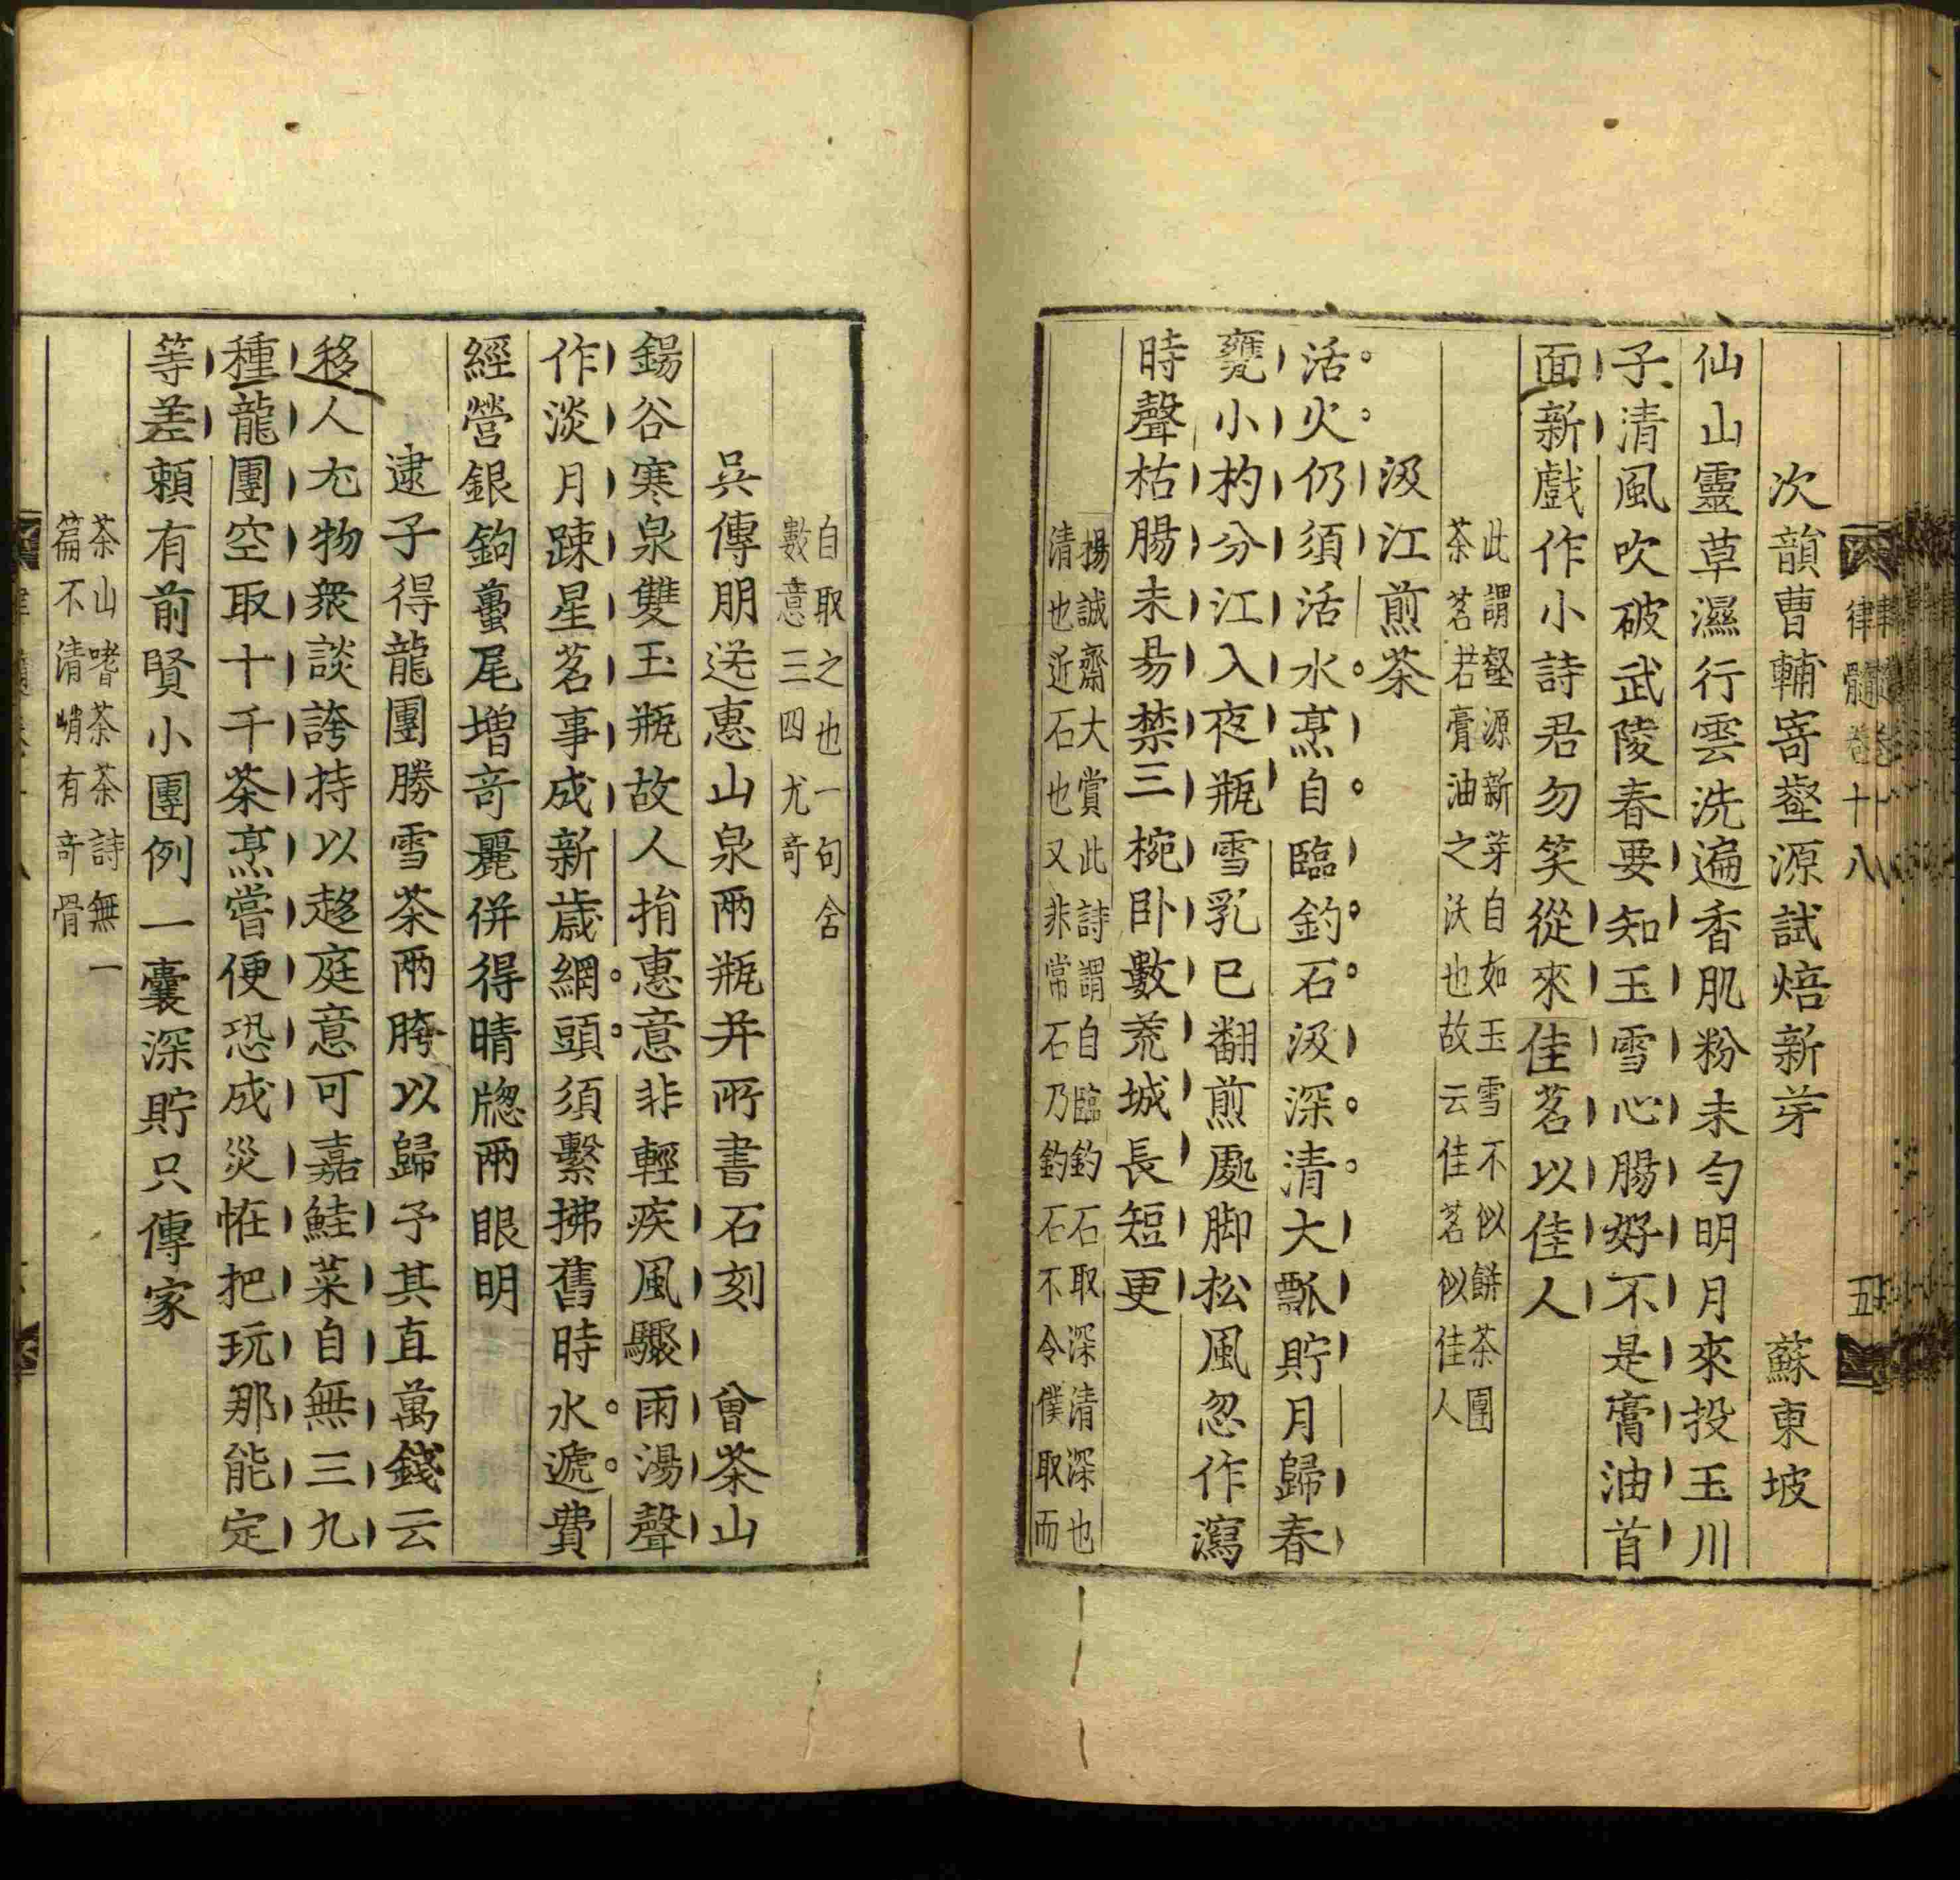 律髓卷十八
五
次韻曹輔寄壑源試焙新芽　蘇東坡
仙山靈草濕行雲洗遍香肌粉未勻明月來投玉川
子清風吹破武陵春要知玉雪心腸好不是膏油首
面新戲作小詩君勿笑從來佳茗以佳人
此謂壑源新芽自如玉雪不似餅茶團
茶茗若膏油之沃也故云佳茗似佳人
汲江煎茶
活火仍須活水烹自臨釣石汲深清大瓢貯月歸春
甕小杓分江入夜瓶雪乳已翻煎處脚松風忽作瀉
時聲枯腸未易禁三椀卧數荒城長短更
楊誠齋大賞此詩謂自臨釣石取深清深也
清也近石也又非常石乃釣石不令僕取而
自取之也一句含
數意三四尤奇
吳傳朋送惠山泉兩瓶并所書石刻　曾茶山
鍚谷寒泉雙玉瓶故人捎惠意非輕疾風驟雨湯聲
作淡月踈星茗事成新歲網頭須繫拂舊時水遞費
經營銀鉤蠆尾增奇麗併得晴牕兩眼明
逮子得龍團勝雪茶兩胯以歸予其直萬錢云
移人尤物衆談誇持以趍庭意可嘉鮭菜自無三九
種龍團空取十千茶烹嘗便恐成災恠把玩那能定
等差頼有前賢小團例一囊深貯只傳家
茶山嗜茶茶詩無一
篇不清峭有奇骨